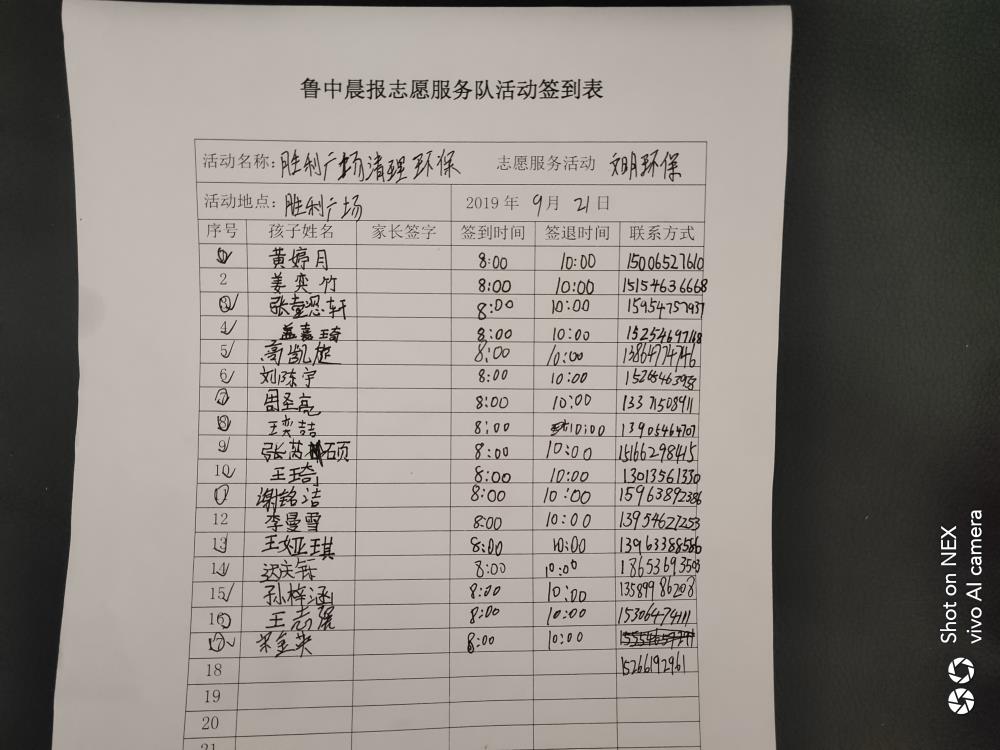 鲁中晨报志愿服务队活动签到表
活动名称: 胜利广场清理环保 志愿服务活动 文明环保
活动地点: 胜利广场 2019 年 9 月 21 日
序号 孩子姓名 家长签字 签到时间 签退时间 联系方式
1 黄婷月 8:00 10:00 15006527610
2 姜奕竹 8:00 10:00 15154636668
3 8:00 10:00 15954757937
4 孟嘉琦 8:00 10:00 15254697168
5 高凯旋 8:00 10:00 13864774746
6 刘陈宇 8:00 10:00
7 周圣亮 8:00 10:00 13371508911
8 王奕喆 8:00 10:00 13905464707
9 张芮硕 8:00 10:00 15166298415
10 王琦 8:00 10:00 13013561330
11 谢铭洁 8:00 10:00 15963892386
12 李曼雪 8:00 10:00 13954627253
13 王娅琪 8:00 10:00 13963388586
14 8:00 10:00 18653693503
15 孙梓涵 8:00 10:00 13589986208
16 王志强 8:00 10:00 15306474111
17 宋金英 8:00 10:00
18 15266192961
19
20
21
Shot on NEX
vivo AI camera